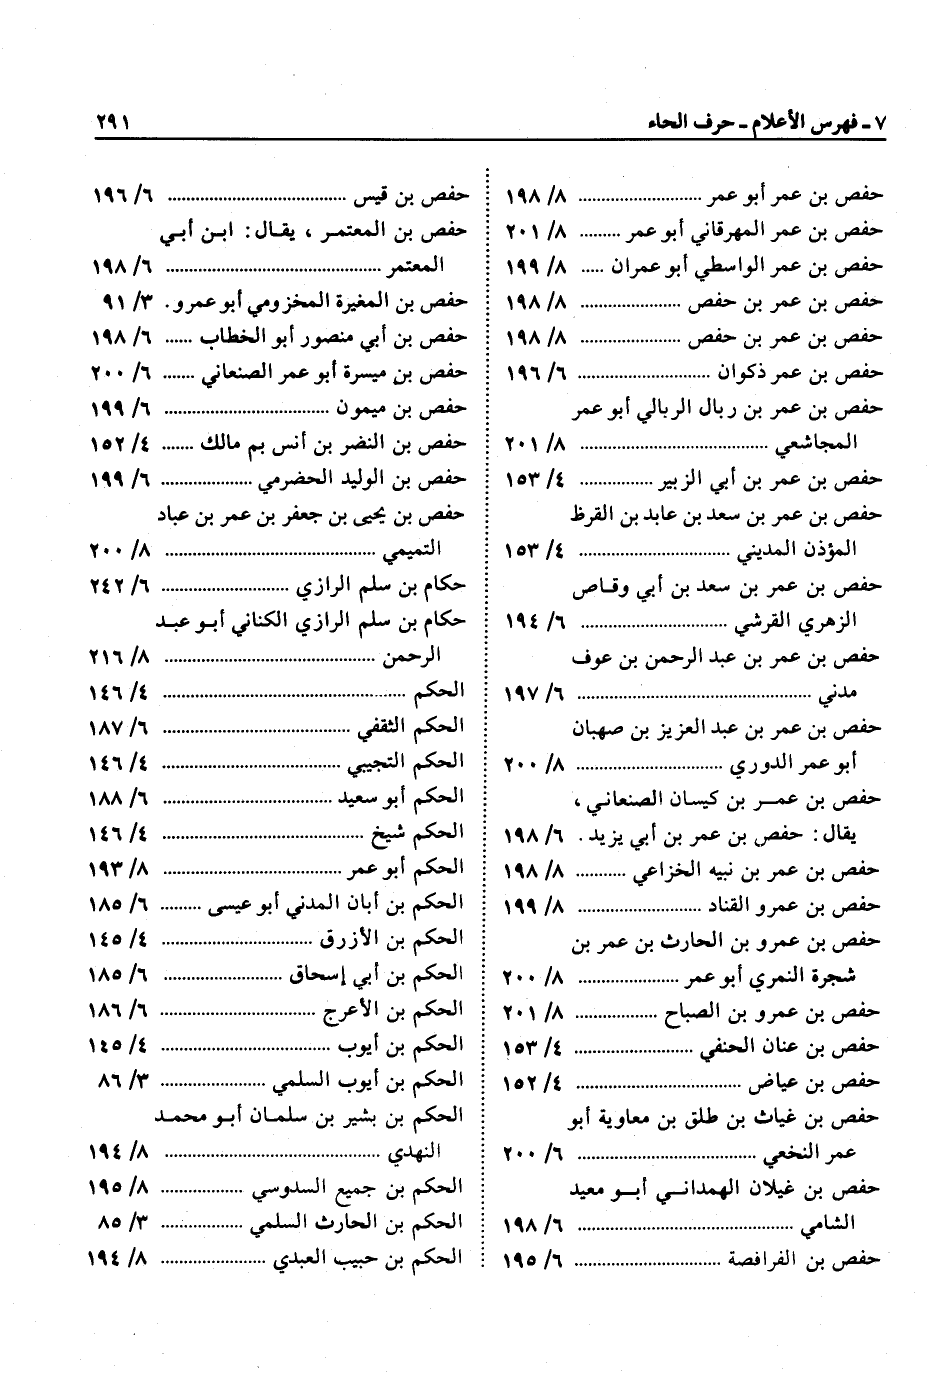 ٧ ـ فهرس الأعلام ـ حرف الحاء ٢٩١
حفص بن عمر أبو عمر .......................... ٨/ ١٩٨
حفص بن عمر المهرقاني أبو عمر ......... ٨/ ٢٠١
حفص بن عمر الواسطي أبو عمران ..... ٨/ ١٩٩
حفص بن عمر بن حفص ...................... ٨/ ١٩٨
حفص بن عمر بن حفص ...................... ٨/ ١٩٨
حفص بن عمر ذكوان ............................ ٦/ ١٩٦
حفص بن عمر بن ربال الربالي أبو عمر
المجاشعي ........................................ ٨/ ٢٠١
حفص بن عمر بن أبي الزبير ................ ٤/ ١٥٣
حفص بن عمر بن سعد بن عابد بن القرظ
المؤذن المديني ................................. ٤/ ١٥٣
حفص بن عمر بن سعد بن أبي وقـاص
الزهري القرشي ................................ ٦/ ١٩٤
حفص بن عمر بن عبد الرحمن بن عوف
مدني .................................................. ٦/ ١٩٧
حفص بن عمر بن عبد العزيز بن صهبان
أبو عمر الدوري ................................ ٨/ ٢٠٠
حفص بن عمـــر بن كيسان الصنعانـي ،
يقال : حفص بن عمر بن أبي يزيد . ٦/ ١٩٨
حفص بن عمر بن نبيه الخزاعي ........... ٨/ ١٩٨
حفص بن عمرو القناد ........................... ٨/ ١٩٩
حفص بن عمرو بن الحارث بن عمر بن
شجرة النمري أبو عمر ...................... ٨/ ٢٠٠
حفص بن عمرو بن الصباح .................. ٨/ ٢٠١
حفص بن عنان الحنفي .......................... ٤/ ١٥٣
حفص بن عياض .................................... ٤/ ١٥٢
حفص بن غياث بن طلق بن معاوية أبو
عمر النخعي ...................................... ٦/ ٢٠٠
حفص بن غيلان الهمدانـي أبـو معيد
الشامي .............................................. ٦/ ١٩٨
حفص بن الفرافصة ................................ ٦/ ١٩٥
حفص بن قيس ...................................... ٦/ ١٩٦
حفص بن المعتمـر ، يقـال : ابـن أبـي
المعتمر .............................................. ٦/ ١٩٨
حفص بن المغيرة المخزومي أبو عمرو. ٣/ ٩١
حفص بن أبي منصور أبو الخطاب ...... ٦/ ١٩٨
حفص بن ميسرة أبو عمر الصنعاني ....... ٦/ ٢٠٠
حفص بن ميمون .................................... ٦/ ١٩٩
حفص بن النضر بن أنس بم مالك ....... ٤/ ١٥٢
حفص بن الوليد الحضرمي .................... ٦/ ١٩٩
حفص بن يحيى بن جعفر بن عمر بن عباد
التميمي ............................................. ٨/ ٢٠٠
حكام بن سلم الرازي ............................ ٦/ ٢٤٢
حكام بن سلم الرازي الكناني أبـو عبـد
الرحمن ............................................. ٨/ ٢١٦
الحكم .................................................... ٤/ ١٤٦
الحكم الثقفي ........................................ ٦/ ١٨٧
الحكم التجيبي ...................................... ٤/ ١٤٦
الحكم أبو سعيد .................................... ٦/ ١٨٨
الحكم شيخ ........................................... ٤/ ١٤٦
الحكم أبو عمر ...................................... ٨/ ١٩٣
الحكم بن أبان المدني أبو عيسى ......... ٦/ ١٨٥
الحكم بن الأزرق ................................ ٤/ ١٤٥
الحكم بن أبي إسحاق .......................... ٦/ ١٨٥
الحكم بن الأعرج ................................. ٦/ ١٨٦
الحكم بن أيوب .................................... ٤/ ١٤٥
الحكم بن أيوب السلمي ....................... ٣/ ٨٦
الحكم بن بشير بن سلمـان أبـو محمـد
النهدي .............................................. ٨/ ١٩٤
الحكم بن جميع السدوسي .................. ٨/ ١٩٥
الحكم بن الحارث السلمي .................. ٣/ ٨٥
الحكم بن حبيب العبدي ....................... ٨/ ١٩٤